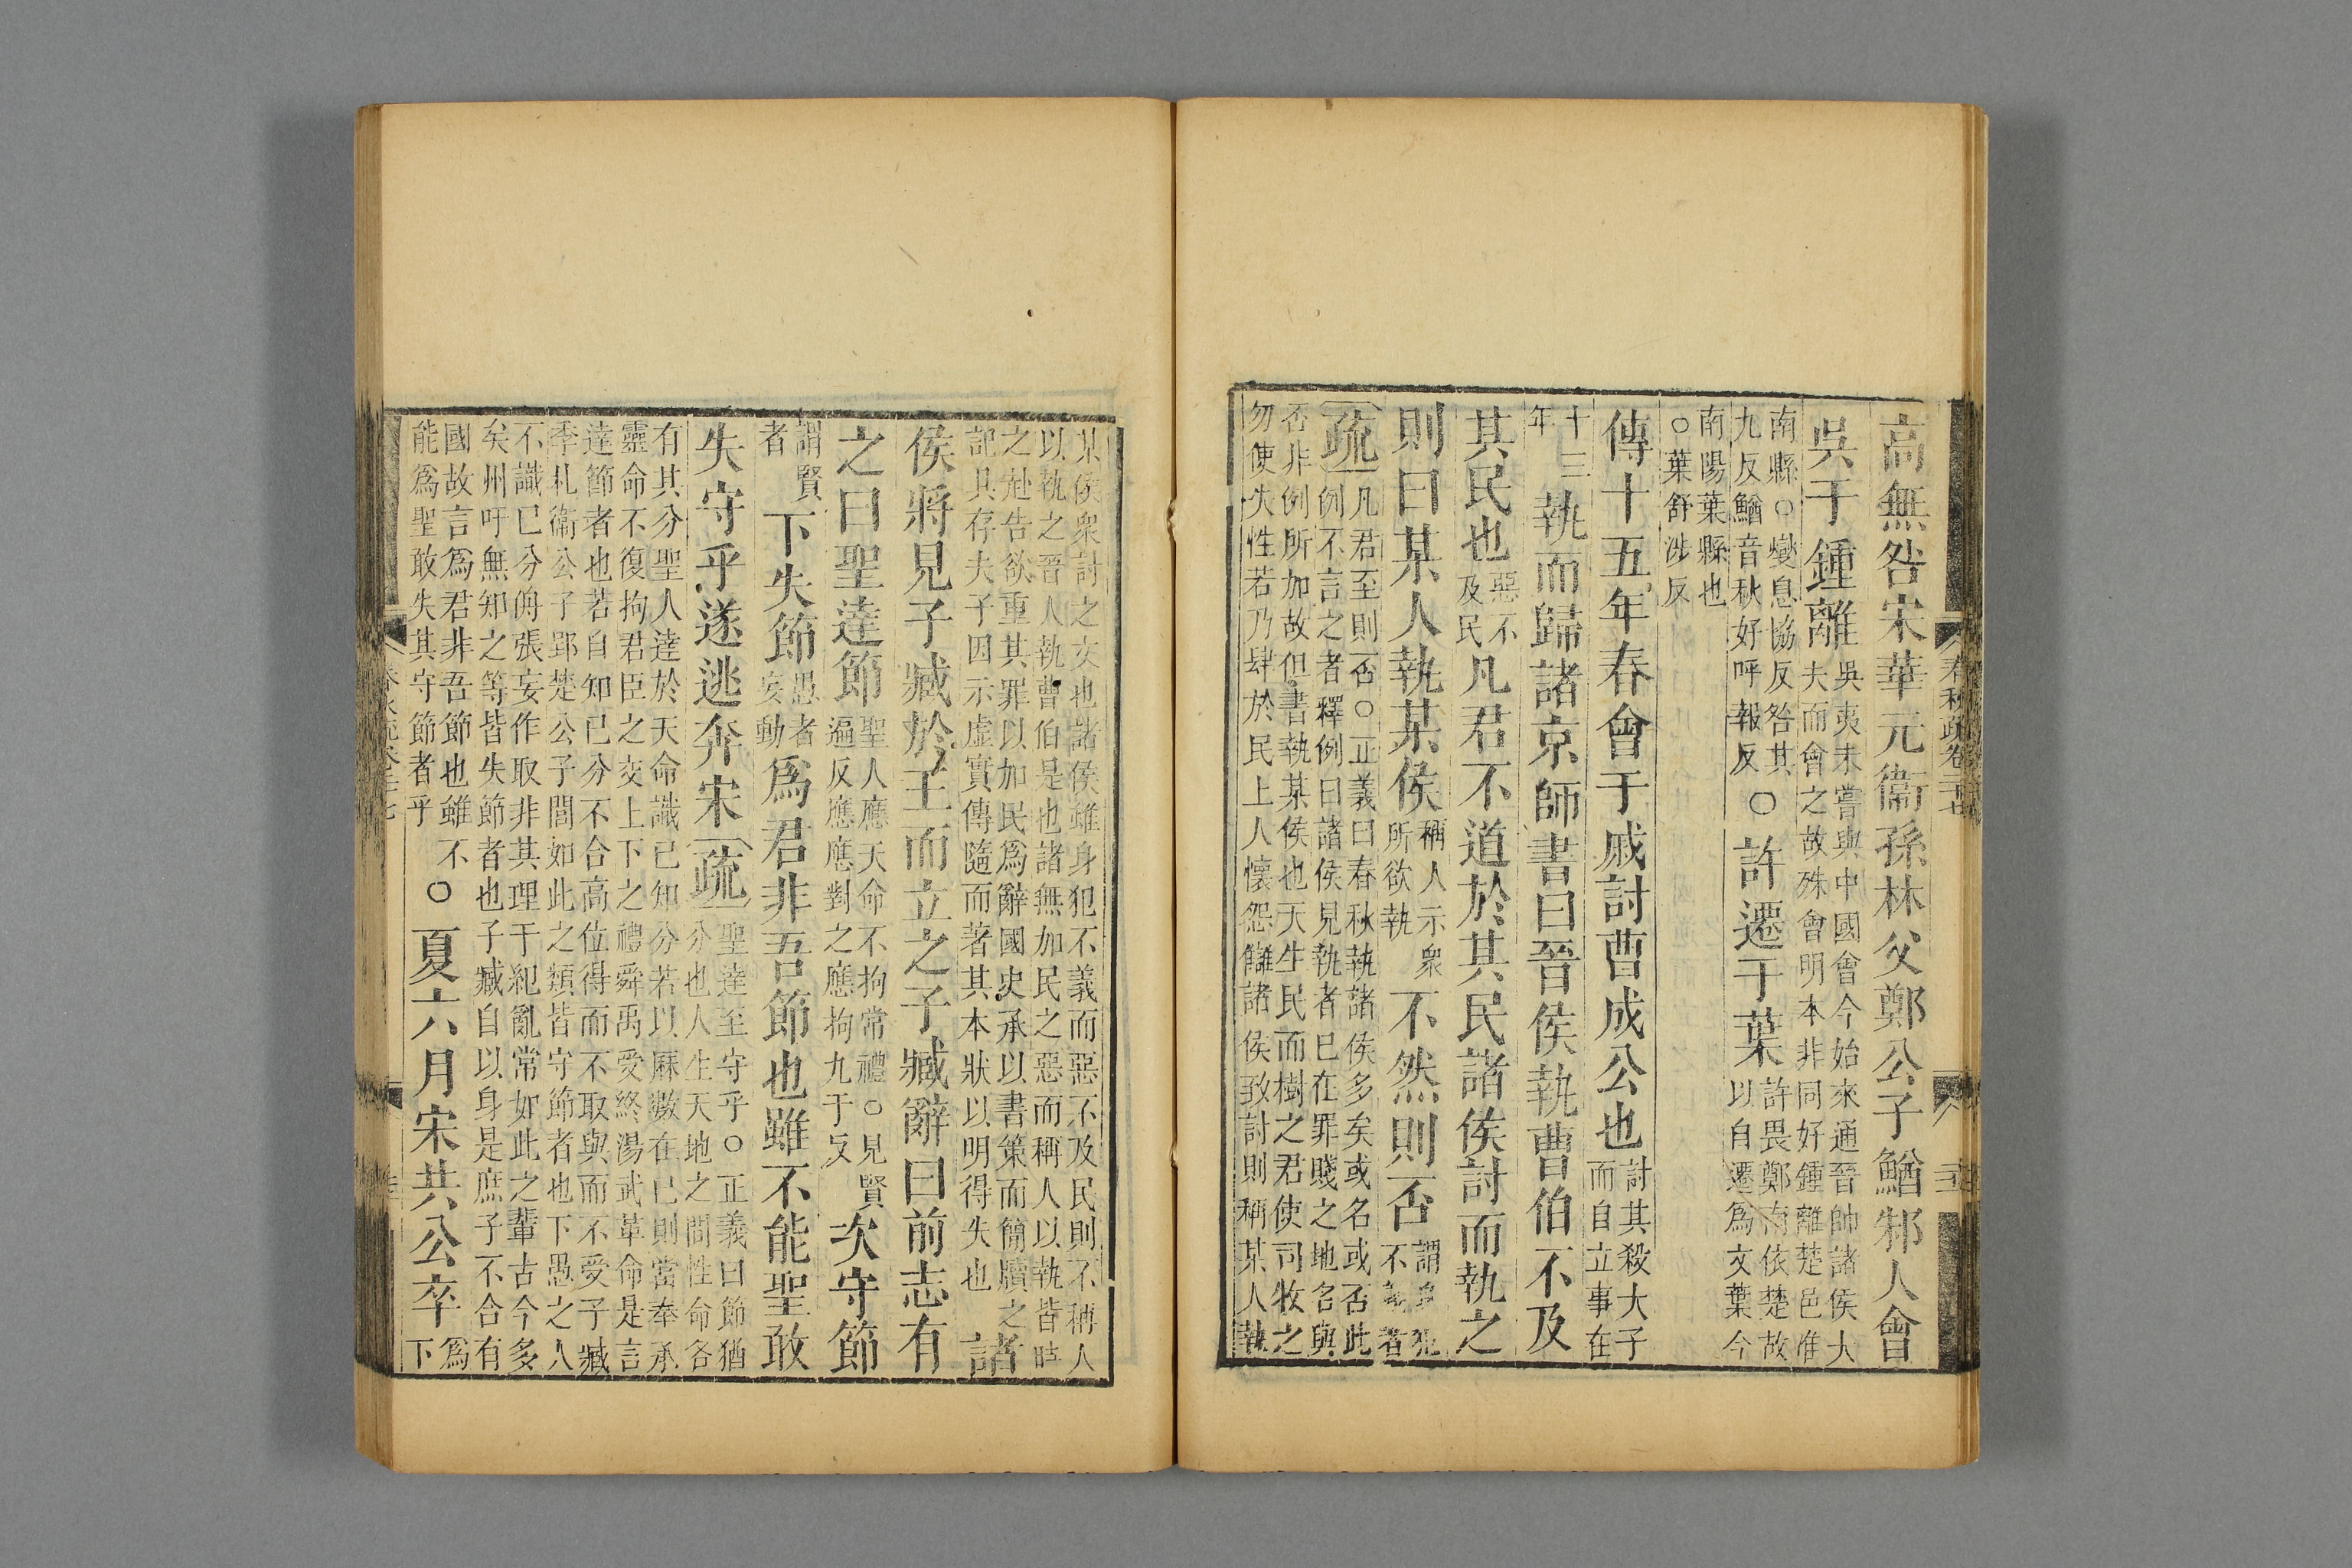 高無咎宋華元衞孫林父鄭公子鰌邾人會
吳于鍾離
吳夷未嘗與中國會今始來通晉帥諸侯大
夫而會之故殊會明本非同好鍾離楚邑淮
南縣○燮息協反咎其
九反鰌音秋好呼報反
○許遷于葉
許畏鄭南依楚故
以自遷爲文葉今
南陽葉縣也
○葉舒涉反
傳十五年春會于戚討曹成公也
討其殺大子
而自立事在
十三
年
執而歸諸京師書曰晉侯執曹伯不及
其民也
惡不
及民
凡君不道於其民諸侯討而執之
則曰某人執某侯
稱人示衆
所欲執
不然則否
謂身犯
不義者
疏
凡君至則否○正義曰春秋執諸侯多矣或名或否此
例不言之者釋例曰諸侯見執者已在罪賤之地名與
否非例所加故但書執某侯也天生民而樹之君使司牧之
勿使失性若乃肆於民上人懷怨讎諸侯致討則稱某人執
某侯衆討之文也諸侯雖身犯不義而惡不及民則不稱人
以執之晉人執曹伯是也諸無加民之惡而稱人以執皆時
之赴告欲重其罪以加民爲辭國史承以書策而簡牘之
記具存夫子因示虛實傳隨而著其本狀以明得失也
諸
侯將見子臧於王而立之子臧辭曰前志有
之曰聖達節
聖人應天命不拘常禮○見賢
遍反應應對之應拘九于反
次守節
謂賢
者
下失節
愚者
妄動
爲君非吾節也雖不能聖敢
失守乎遂逃奔宋
疏
聖達至守乎○正義曰節猶
分也人生天地之間性命各
有其分聖人達於天命識己知分若以厤數在己則當奉承
靈命不復拘君臣之交上下之禮舜禹受終湯武革命是言
達節者也若自知己分不合高位得而不取與而不受子臧
季札衞公子郢楚公子閭如此之類皆守節者也下愚之人
不識己分侜張妄作取非其理干紀亂常如此之輩古今多
矣州吁無知之等皆失節者也子臧自以身是庶子不合有
國故言爲君非吾節也雖不
能爲聖敢失其守節者乎
○夏六月宋共公卒
爲
下
春秋疏卷二十七